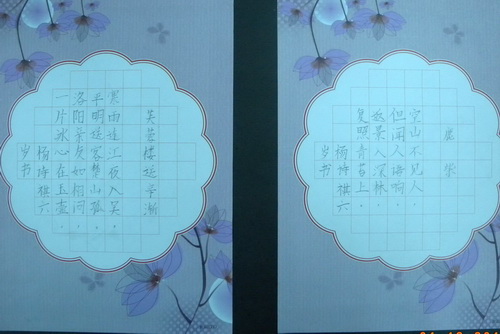 芙蓉楼送辛渐
寒雨连江夜入吴，
平明送客楚山孤。
洛阳亲友如相问，
一片冰心在玉壶。
杨诗棋六
岁书
鹿柴
空山不见人，
但闻人语响。
返景入深林，
复照青苔上。
杨诗棋六
岁书